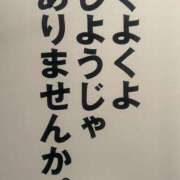 くよくよ
しようじゃ
ありませんか。